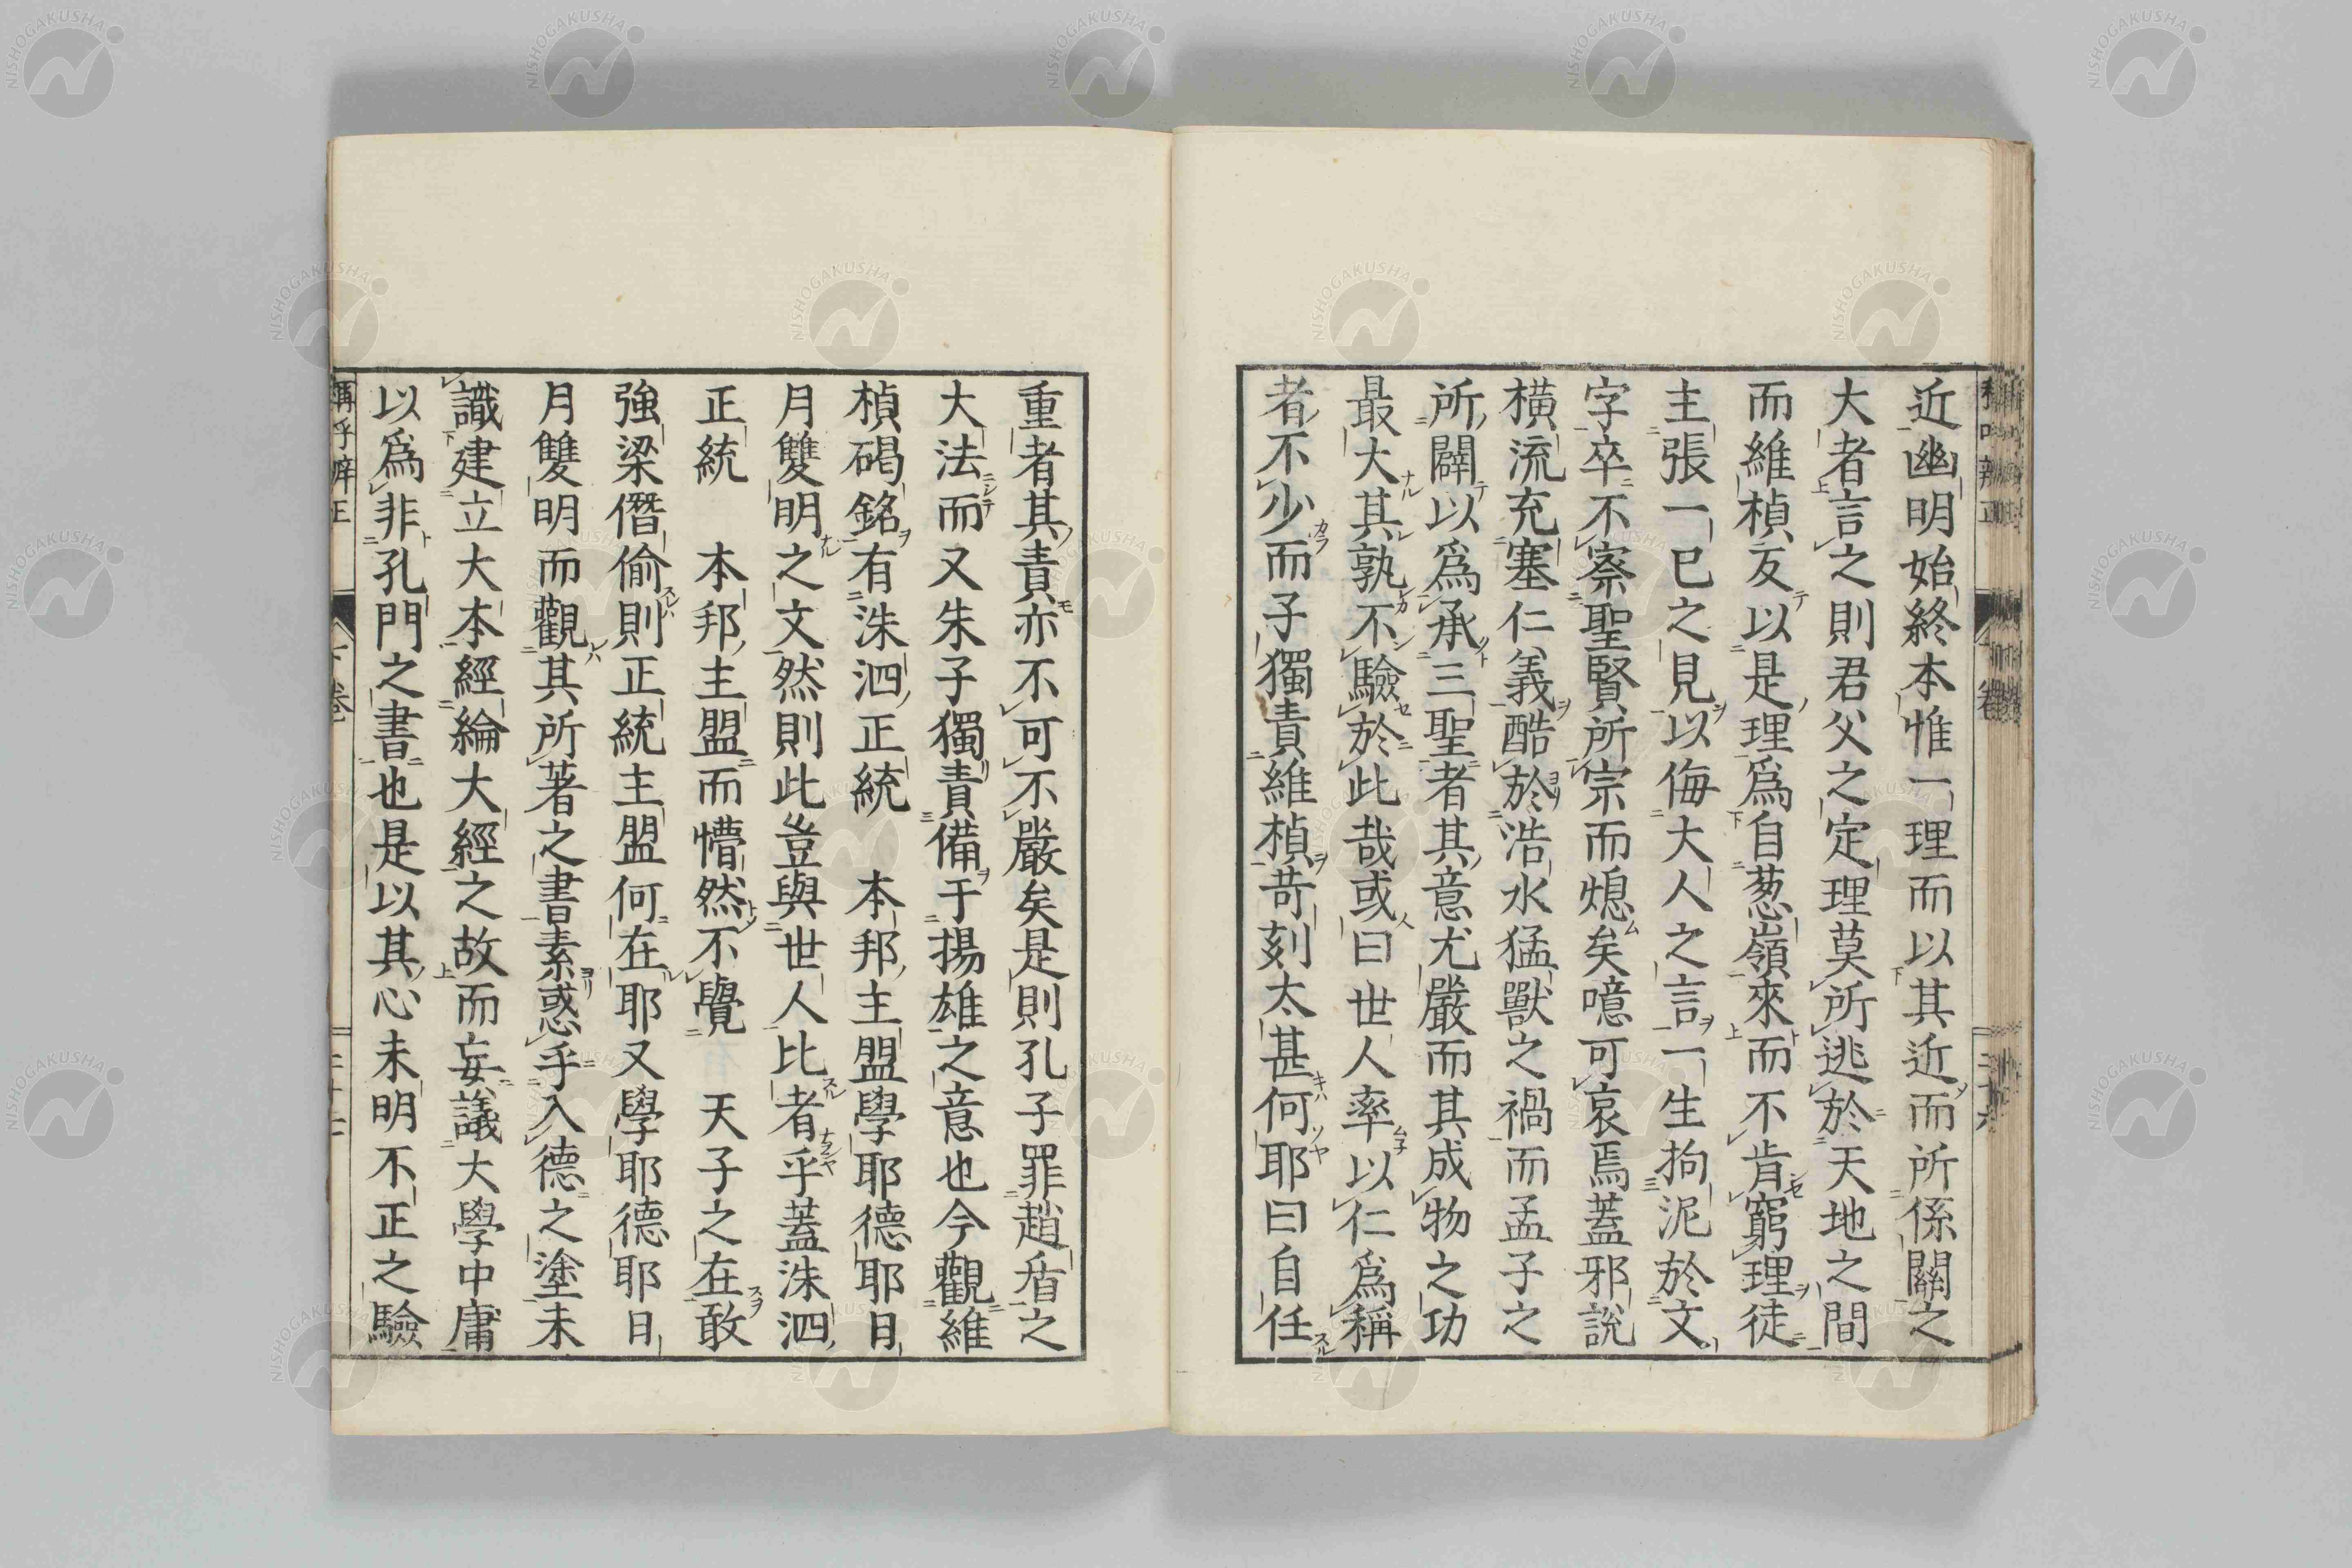 近幽明始終本惟一理而以其近而所係關之
大者言之則君父之定理莫所逃於天地之間
而維楨反以是理爲自葱嶺來而不肯窮理徒
主張一己之見以侮大人之言一生拘泥於文
字卒不察聖賢所宗而熄矣噫可哀焉蓋邪說
橫流充塞仁義酷於浩水猛獸之禍而孟子之
所闢以爲承三聖者其意尤嚴而其成物之功
最大其孰不驗於此哉或曰世人率以仁爲稱
者不少而子獨責維楨苛刻太甚何耶曰自任
重者其責亦不可不嚴矣是則孔子罪趙盾之
大法而又朱子獨責備于揚雄之意也今觀維
楨碣銘有洙泗正統　本邦主盟學耶德耶日
月雙明之文然則此豈與世人比者乎蓋洙泗
正統　本邦主盟而懵然不覺　天子之在敢
強梁僭偷則正統主盟何在耶又學耶德耶日
月雙明而觀其所著之書素惑乎入德之塗未
識建立大本經綸大經之故而妄議大學中庸
以爲非孔門之書也是以其心未明不正之驗
稱呼辨正
下卷
NISHOGAKUSHA